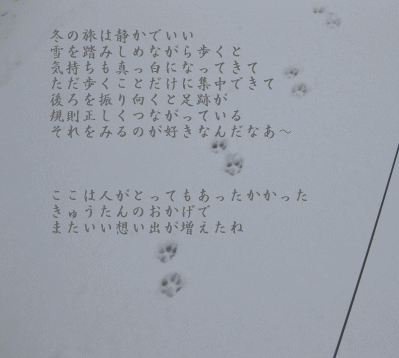 冬の旅は静かでいい
雪を踏みしめながら歩くと
気持ちも真っ白になってきて
ただ歩くことだけに集中できて
後ろを振り向くと足跡が
規則正しくつながっている
それをみるのが好きなんだなあ～
ここは人がとってもあったかかった
きゅうたんのおかげで
またいい想い出が増えたね